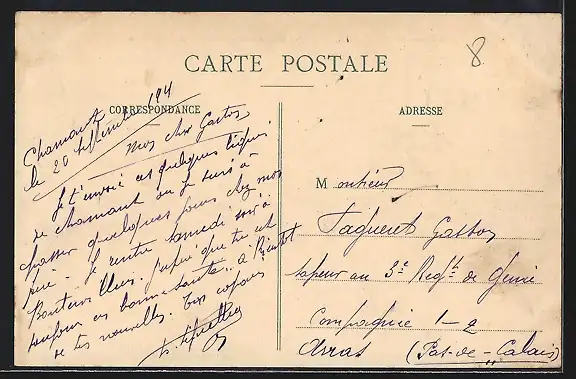 CARTE POSTALE
CORRESPONDANCE
Chamant
le 20 septembre 194
Mon cher Gaston
Je t'envoie ces quelques lignes
de Chamant ou je suis à
passer quelques jours chez mon
père. je rentre samedi soir à
J'espère que tu est
toujours en bonne santé. à Bientot
de tes nouvelles. Ton copain
8
ADRESSE
Monsieur
Gaston
sapeur au 3e Regt de Genie
Compagnie 1-2
Arras (Pas-de-Calais)